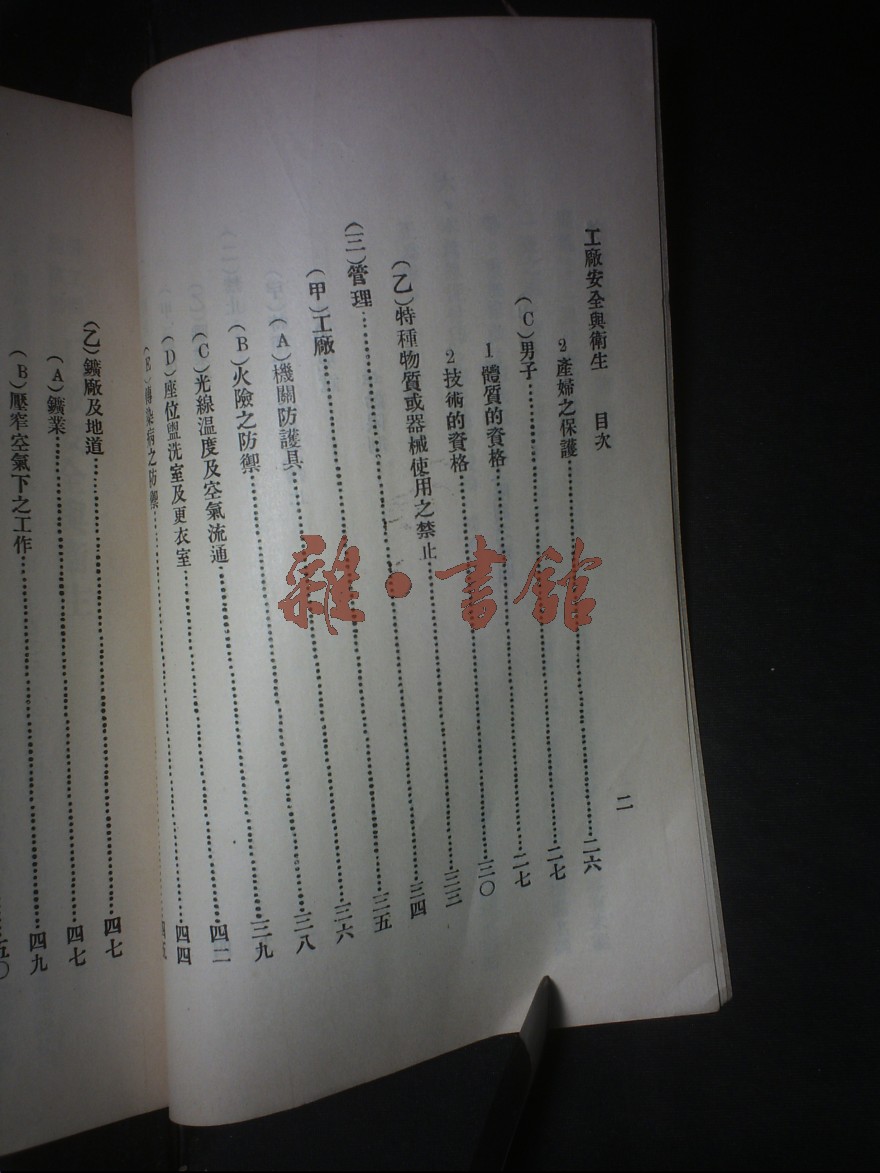 工廠安全與衛生　目次　二
2產婦之保護……二六
(C)男子……二七
1體質的資格……二七
2技術的資格……三〇
(乙)特種物質或器械使用之禁止……三三
(三)管理……三四
(甲)工廠……三五
(A)機關防護具……三六
(B)火險之防禦……三八
(C)光線温度及空氣流通……三九
(D)座位盥洗室及更衣室……四二
(E)傳染病之防禦……四四
四五
(乙)鑛廠及地道……四七
(A)鑛業……四七
(B)壓窄空氣下之工作……四九
五〇
雜·書館